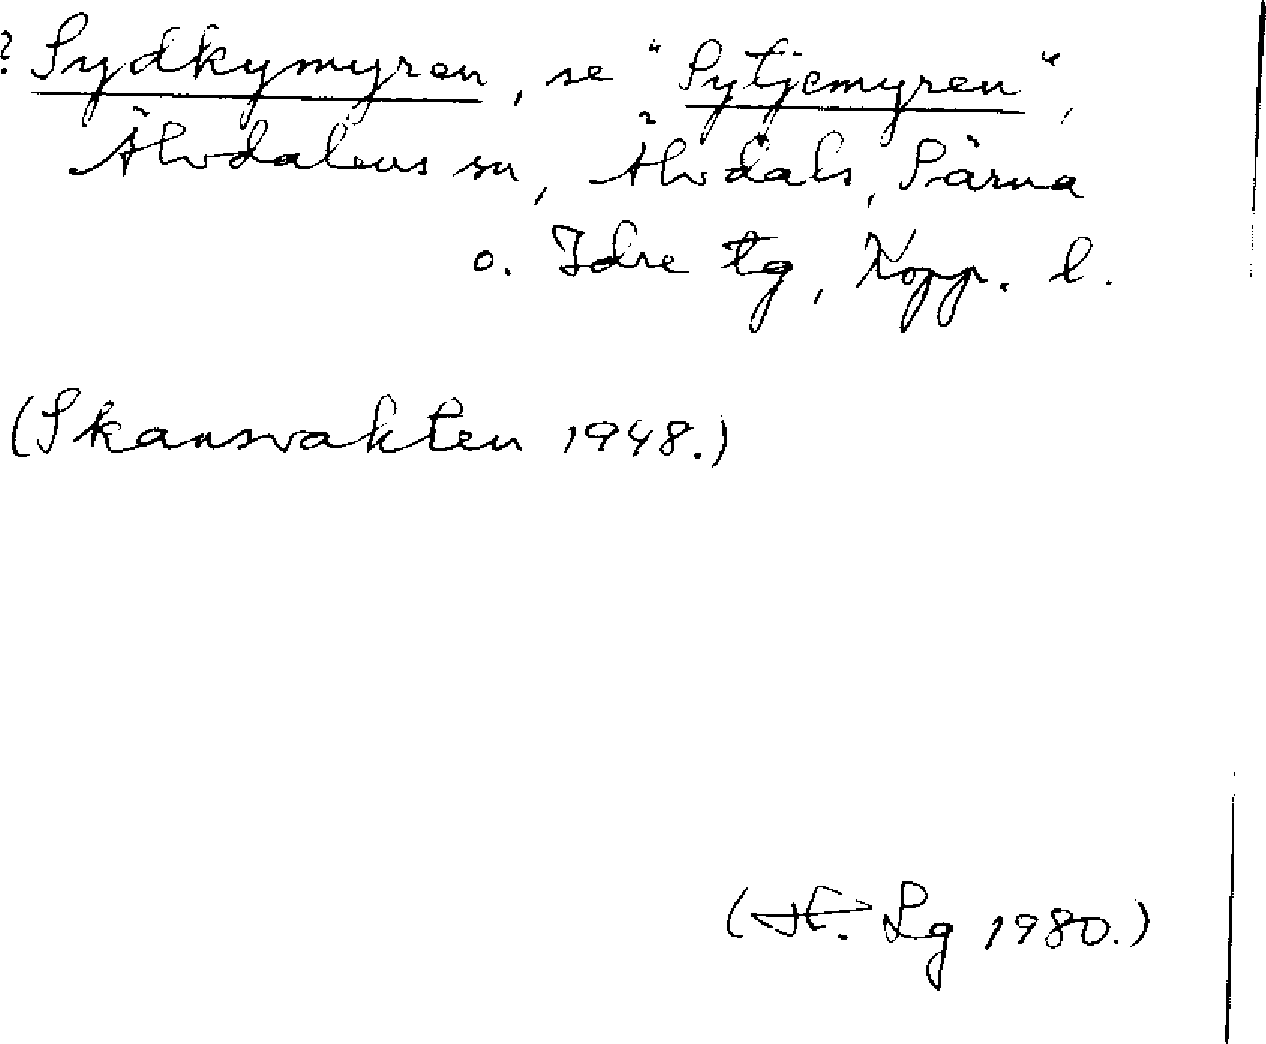 ? Sydkymyren, se "Sytjemyren",
Älvdalens sn, Älvdals, Särna
o. Idre tg, Kopp. l.
(Skansvakten 1948.)
Lg 1980.)